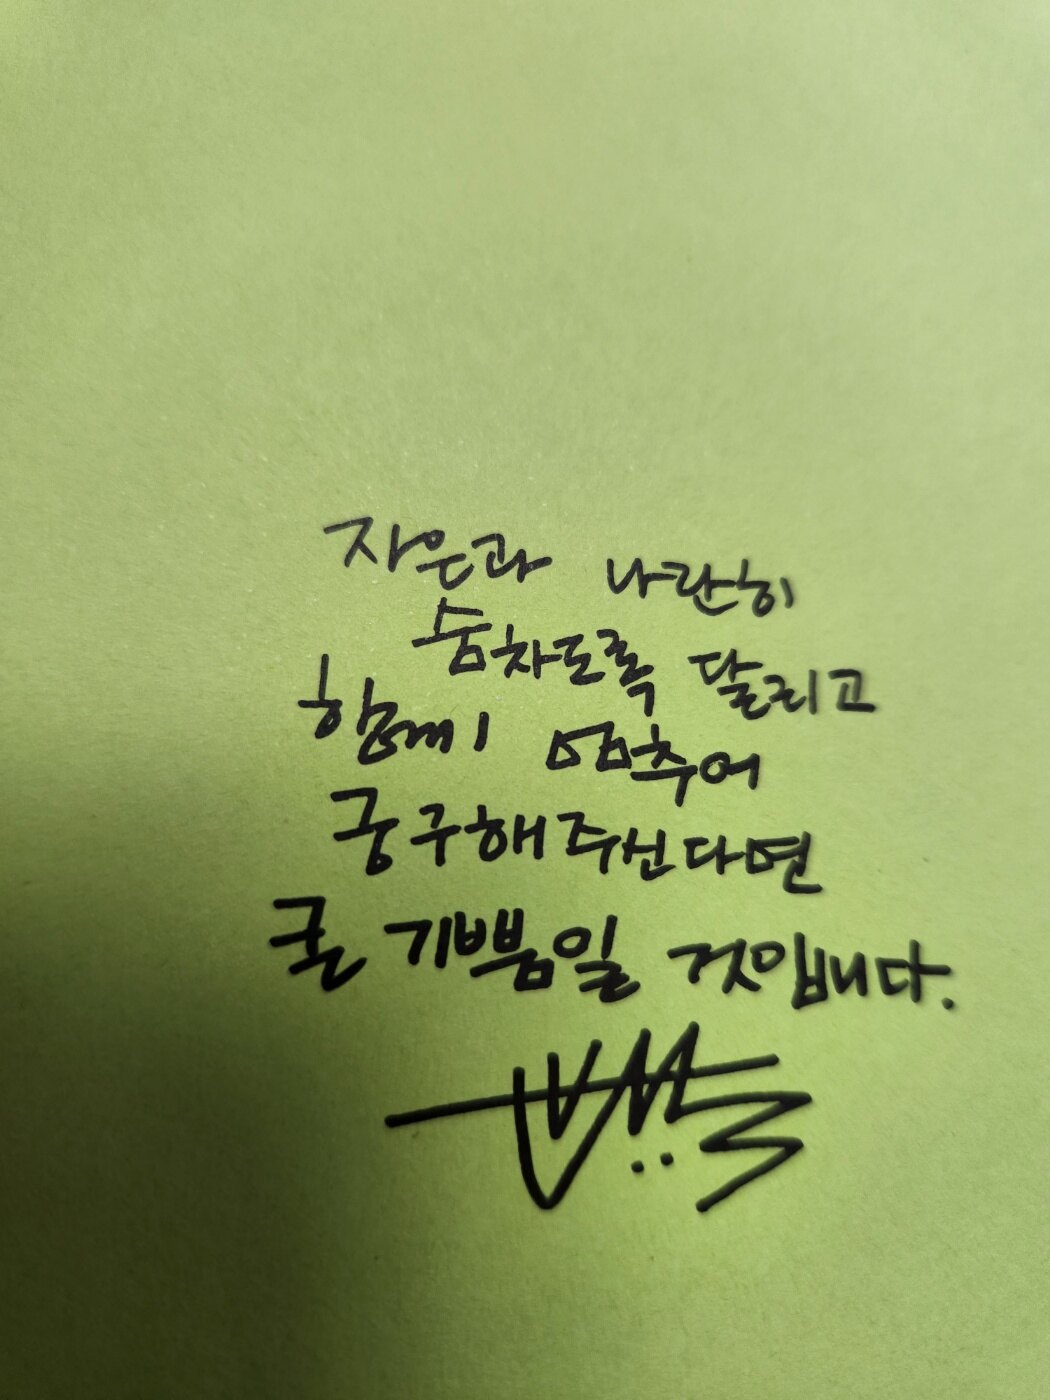 자은과 나란히
숨차도록 달리고
함께 멈추어
궁구해주신다면
큰 기쁨일 것입니다.